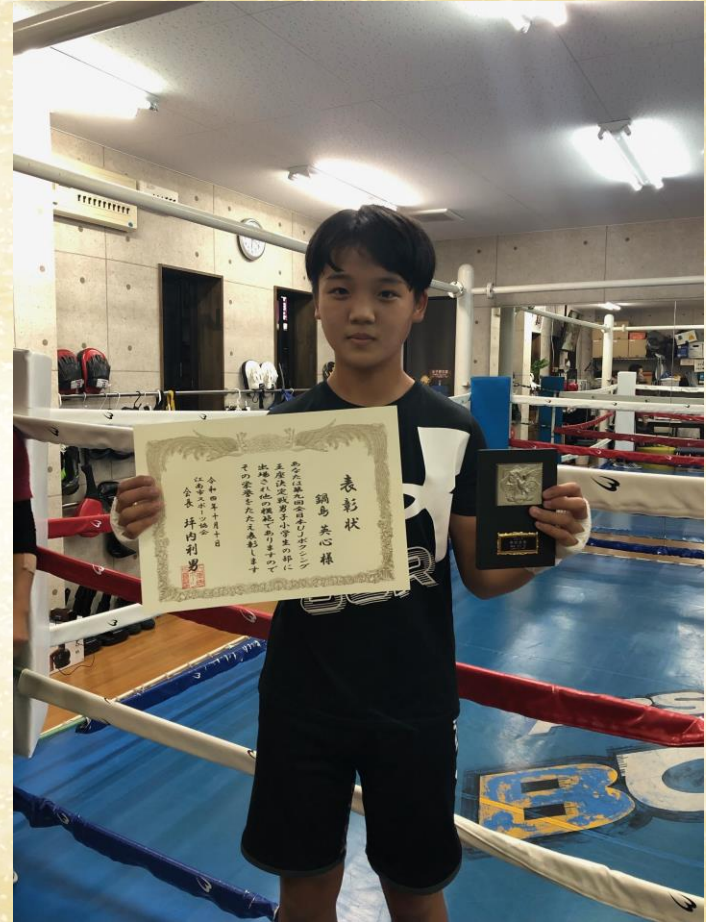 表彰状
鍋島 英心 様
あなたは第九回全日本UJボクシング
王座決定戦男子小学生の部に
出場され他の模範でありますので
その栄誉をたたえ表彰します
令和四年十月十日
江南市スポーツ協会
会長 坪内利男